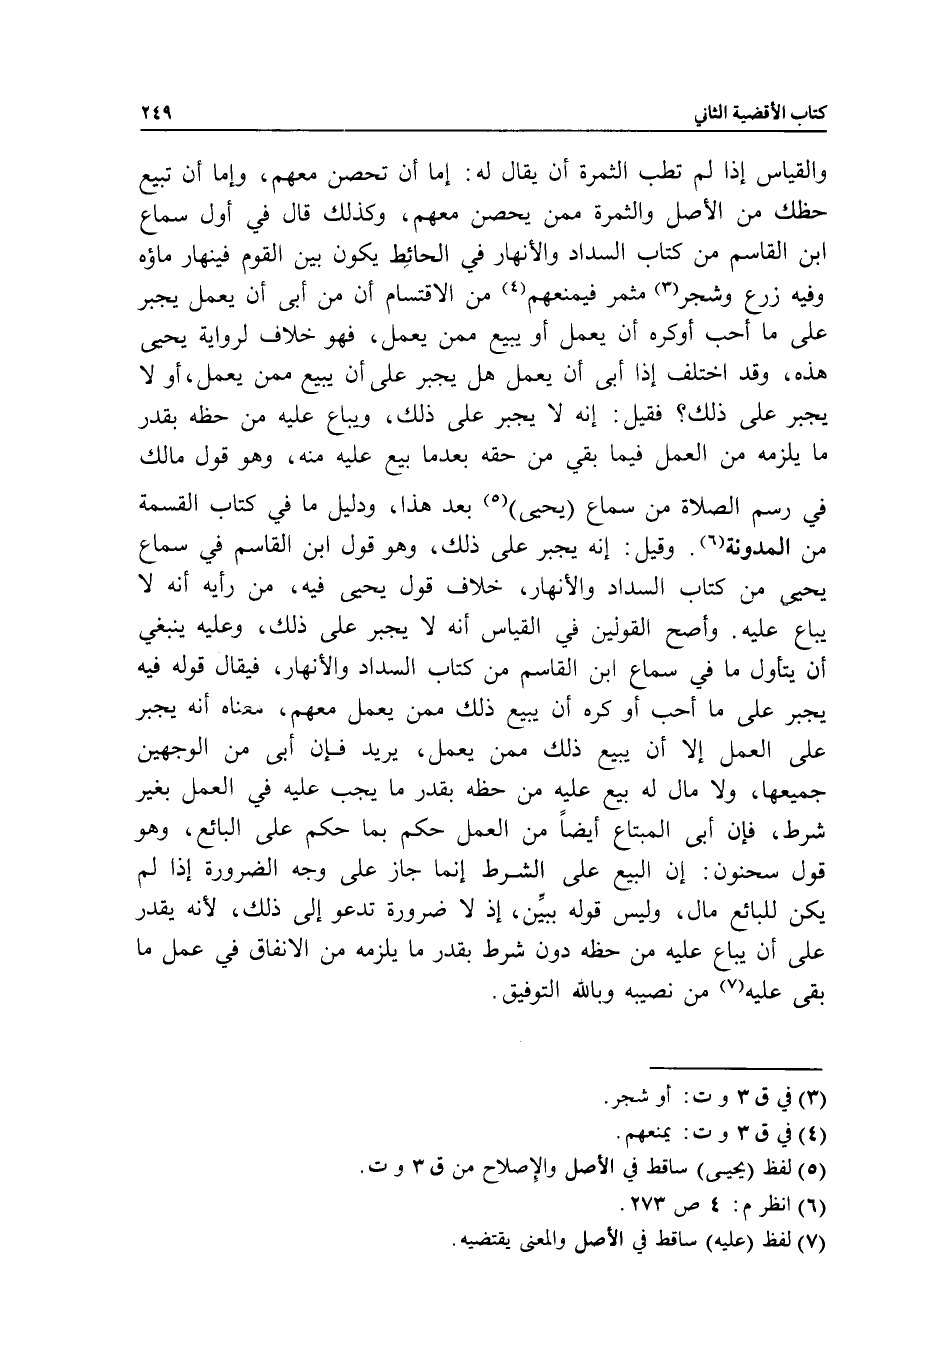 كتاب الأقضية الثاني ٢٤٩
والقياس إذا لم تطب الثمرة أن يقال له: إما أن تحصن معهم، وإما أن تبيع
حظك من الأصل والثمرة ممن يحصن معهم، وكذلك قال في أول سماع
ابن القاسم من كتاب السداد والأنهار في الحائط يكون بين القوم فينهار ماؤه
وفيه زرع وشجر(٣) مثمر فيمنعهم(٤) من الاقتسام أن من أبى أن يعمل يجبر
على ما أحب أوكره أن يعمل أو يبيع ممن يعمل، فهو خلاف لرواية يحيى
هذه، وقد اختلف إذا أبى أن يعمل هل يجبر على أن يبيع ممن يعمل، أو لا
يجبر على ذلك؟ فقيل: إنه لا يجبر على ذلك، ويباع عليه من حظه بقدر
ما يلزمه من العمل فيما بقي من حقه بعدما بيع عليه منه، وهو قول مالك
في رسم الصلاة من سماع (يحيى)(٥) بعد هذا، ودليل ما في كتاب القسمة
من المدونة(٦). وقيل: إنه يجبر على ذلك، وهو قول ابن القاسم في سماع
يحيى من كتاب السداد والأنهار، خلاف قول يحيى فيه، من رأيه أنه لا
يباع عليه. وأصح القولين في القياس أنه لا يجبر على ذلك، وعليه ينبغي
أن يتأول ما في سماع ابن القاسم من كتاب السداد والأنهار، فيقال قوله فيه
يجبر على ما أحب أو كره أن يبيع ذلك ممن يعمل معهم، معناه أنه يجبر
على العمل إلا أن يبيع ذلك ممن يعمل، يريد فإن أبى من الوجهين
جميعها، ولا مال له بيع عليه من حظه بقدر ما يجب عليه في العمل بغير
شرط، فإن أبى المبتاع أيضاً من العمل حكم بما حكم على البائع، وهو
قول سحنون: إن البيع على الشرط إنما جاز على وجه الضرورة إذا لم
يكن للبائع مال، وليس قوله ببيِّن، إذ لا ضرورة تدعو إلى ذلك، لأنه يقدر
على أن يباع عليه من حظه دون شرط بقدر ما يلزمه من الانفاق في عمل ما
بقى عليه(٧) من نصيبه وبالله التوفيق.
(٣) في ق ٣ و ت: أو شجر.
(٤) في ق ٣ و ت: يمنعهم.
(٥) لفظ (يحيى) ساقط في الأصل والإصلاح من ق ٣ و ت.
(٦) انظر م: ٤ ص ٢٧٣.
(٧) لفظ (عليه) ساقط في الأصل والمعنى يقتضيه.